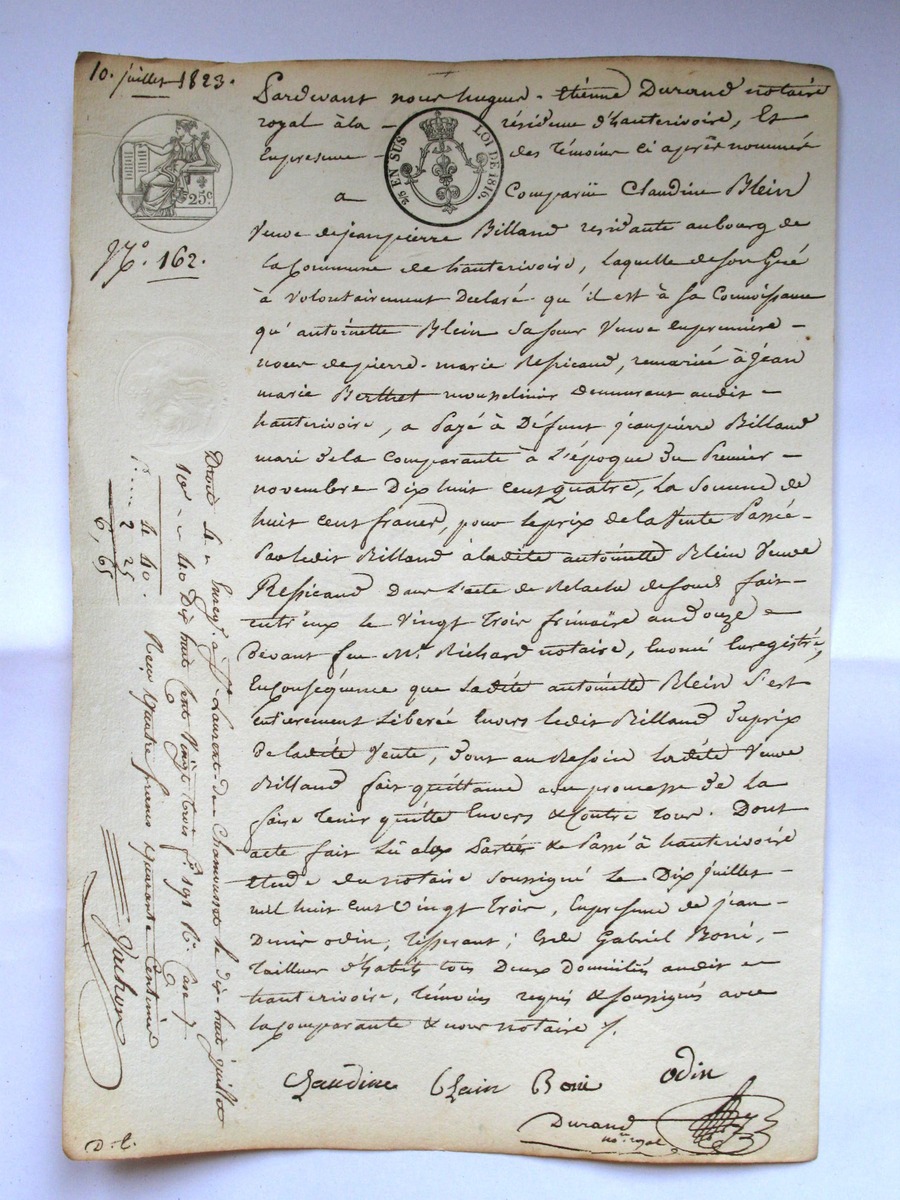 10. juillet 1823.
25c
N.º 162.
2/5 EN SUS LOI DE 1816.
Pardevant nous hugues-étienne Durand notaire
royal à la résidence d'hauterivoire, Et
Enpresence des témoins ci après nommés
a Comparüe Claudine Blein
Veuve de jeanpierre Billand residante aubourg de
la Commune de hauterivoire, laquelle deson Gré
à Volontairement Declaré qu'il est à sa Connoissance
qu'antoinette Blein sa sœur Veuve Enpremière
noces depierre-marie Ressicaud, remariée à jean
marie Berthet mousselinier demeurant audit
hauterivoire, a Payé à Défunt jeanpierre Billand
mari dela Comparante à L'époque du Premier
novembre Dix huit Cent quatre, la somme de
huit Cent francs, pour leprix dela Vente Passée
Par ledit Billand àladite antoinette Blein Veuve
Ressicaud dans l'acte de Relache de fond fait
entr'eux le Vingt Trois frimaire an douze
Devant feu Me. Richard notaire, Enoncé Enregistré,
Enconséquence que Ladite antoinette Blein s'est
Entierement Libérée Envers ledit Billand duprix
De ladite Vente, dont au Besoin Ladite Veuve
Billand fait quittance avec promesse de la
faire Tenir quitte Envers & Contre Tous. Dont
acte fait Lû aux Parties & Passé à hauterivoire
Etude du notaire soussigné le Dix juillet
mil huit Cent Vingt Trois, Enpresence de jean
Denis odin, Tisserant; Et de Gabriel Boni,
Tailleur d'habits tous Deux Domiciliés audit
hauterivoire, Témoins requis & soussignés avec
la Comparante & nous notaire
Claudine Blain Boni odin
Durand
nore. royal
Enregé. à St. Laurent-de-Chamousset le dix huit juillet
Dix huit Cent Vingt Trois fo. 191
Reçu quatre francs quarante Centimes
4 40
2 25
6,65
D:C.